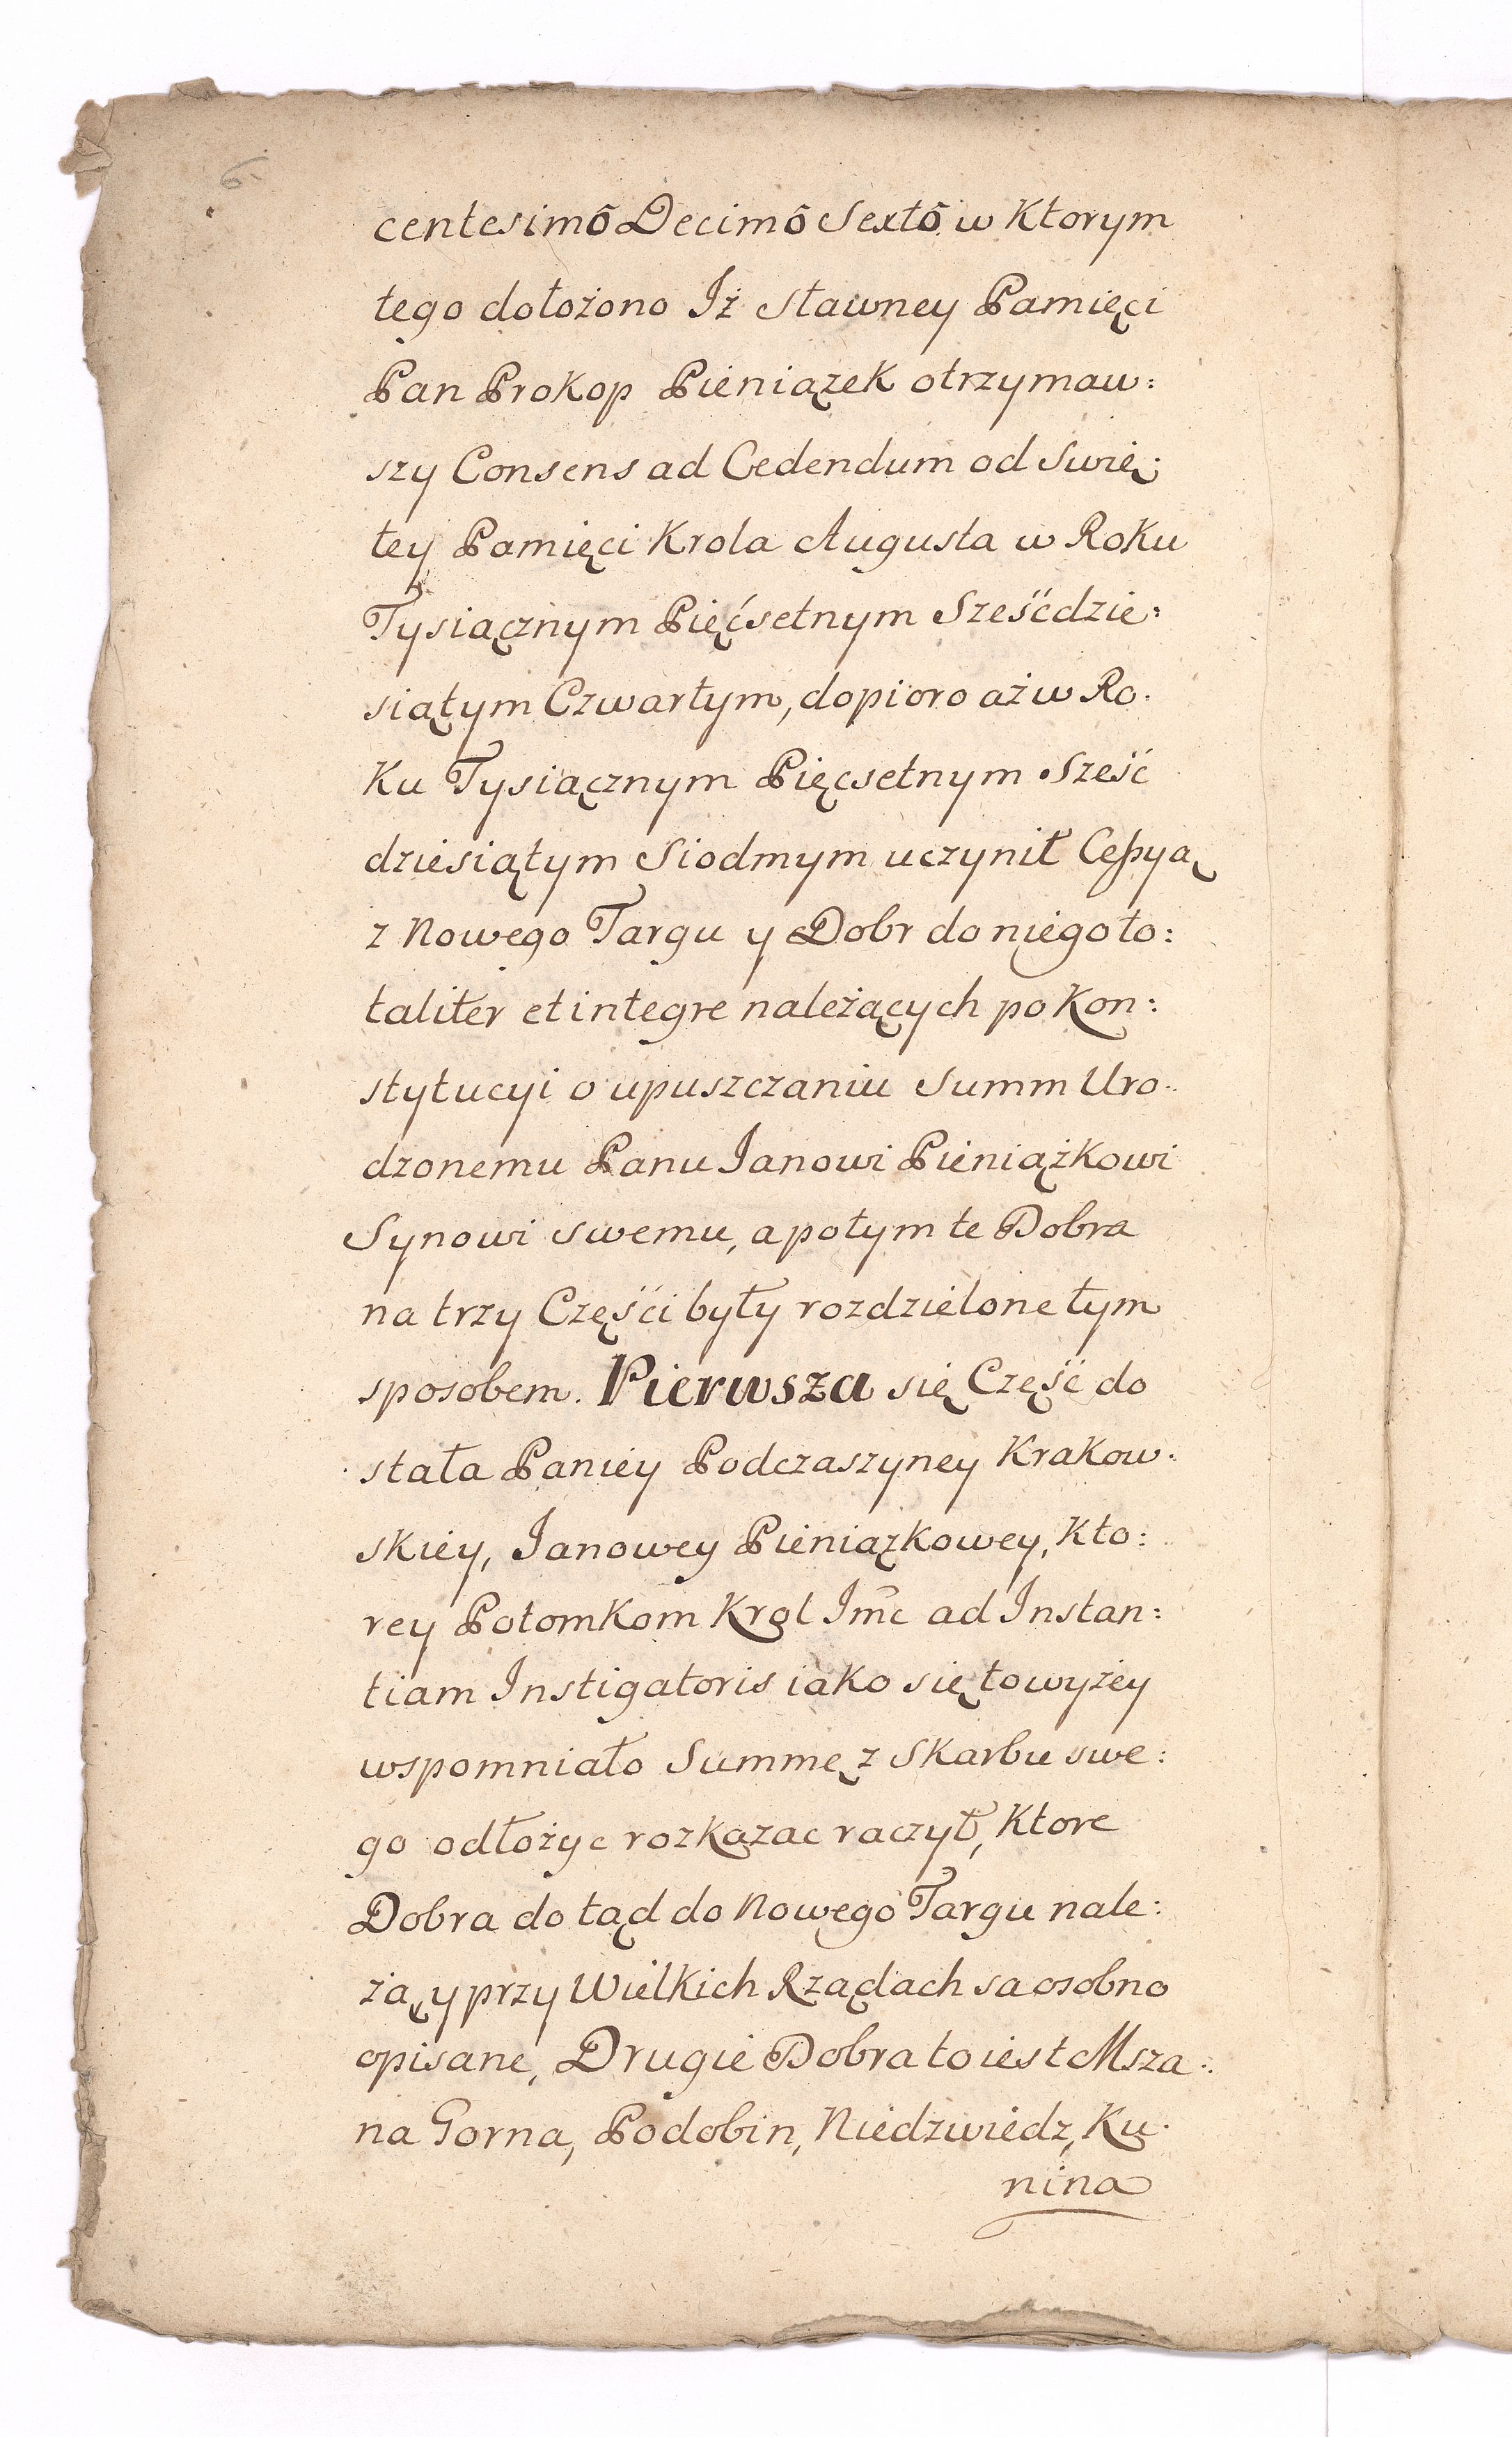 6
centesimō Decimō Sextō w Ktorym
tego dołożono Iż sławney Pamięci
Pan Prokop Pieniązek otrzymaw:
szy Consens ad Cedendum od Swię:
tey Pamięci Krola Augusta w Roku
Tysiącznym Pięćsetnym Sześćdzie:
siątym Czwartym, dopioro aż w Ro:
ku Tysiącznym Pięcsetnym Sześć
dziesiątym Siodmym uczynił Ceßyą
z Nowego Targu y Dobr do niego to:
taliter et integre należących po Kon:
stytucyi o upuszczaniu Summ Uro:
dzonemu Panu Janowi Pieniążkowi
Synowi swemu, a potym te Dobra
na trzy Części były rozdzielone tym
sposobem. Pierwsza się Część do
stała Paniey Podczaszyney Krakow:
skiey, Janowey Pieniązkowey, Kto:
rey Potomkom Krol Jm̃c ad Instan:
tiam Instigatoris iako się to wyżey
wspomniało Summę z Skarbu swe:
go odłożyc rozkazac raczył, Ktore
Dobra do tąd do Nowego Targu nale:
żą, y przy Wielkich Rządach sa osobno
opisane, Drugie Dobra to iest Msza:
na Gorna, Podobin, Niedzwiedz, Ku:
nina